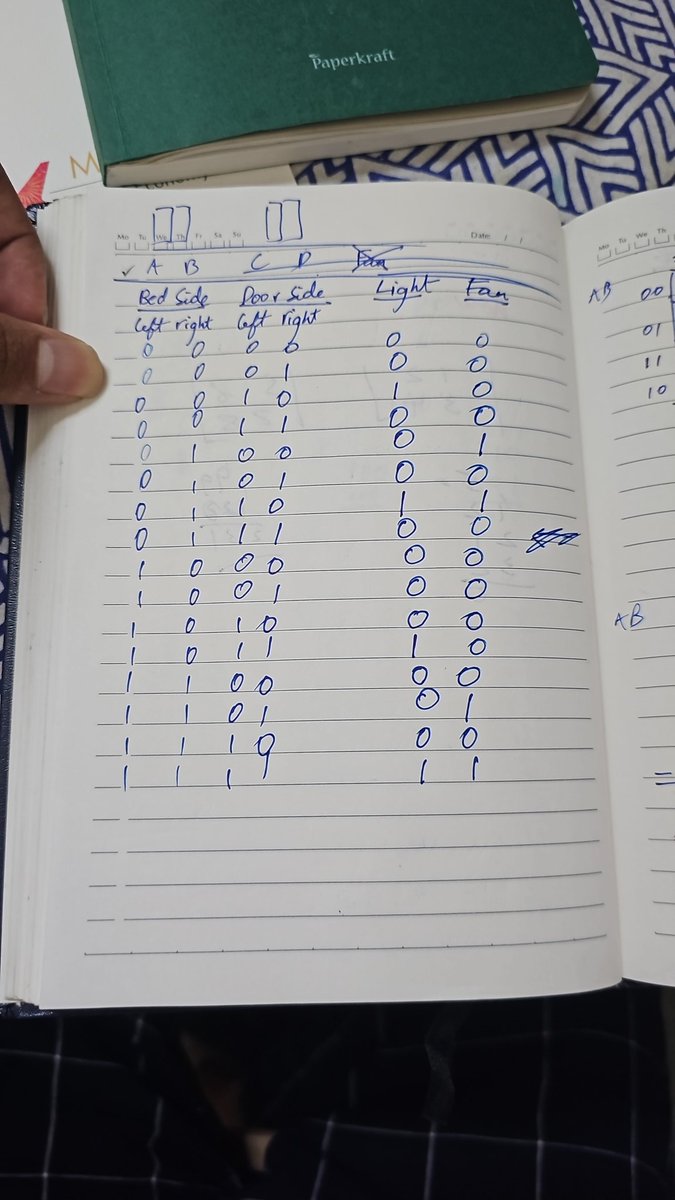 Paperkraft
M
Mo Tu We Th Fr Sa Su Date / /
✓ A B C D Fan
Bed Side Door Side Light Fan
left right left right
0 0 0 0 0 0
0 0 0 1 0 0
0 0 1 0 1 0
0 0 1 1 0 0
0 1 0 0 0 1
0 1 0 1 0 0
0 1 1 0 1 1
0 1 1 1 0 0
1 0 0 0 0 0
1 0 0 1 0 0
1 0 1 0 0 0
1 0 1 1 1 0
1 1 0 0 0 0
1 1 0 1 0 1
1 1 1 0 0 0
1 1 1 1 1 1
Mo Tu We Th
AB 00
01
11
10
AB
=